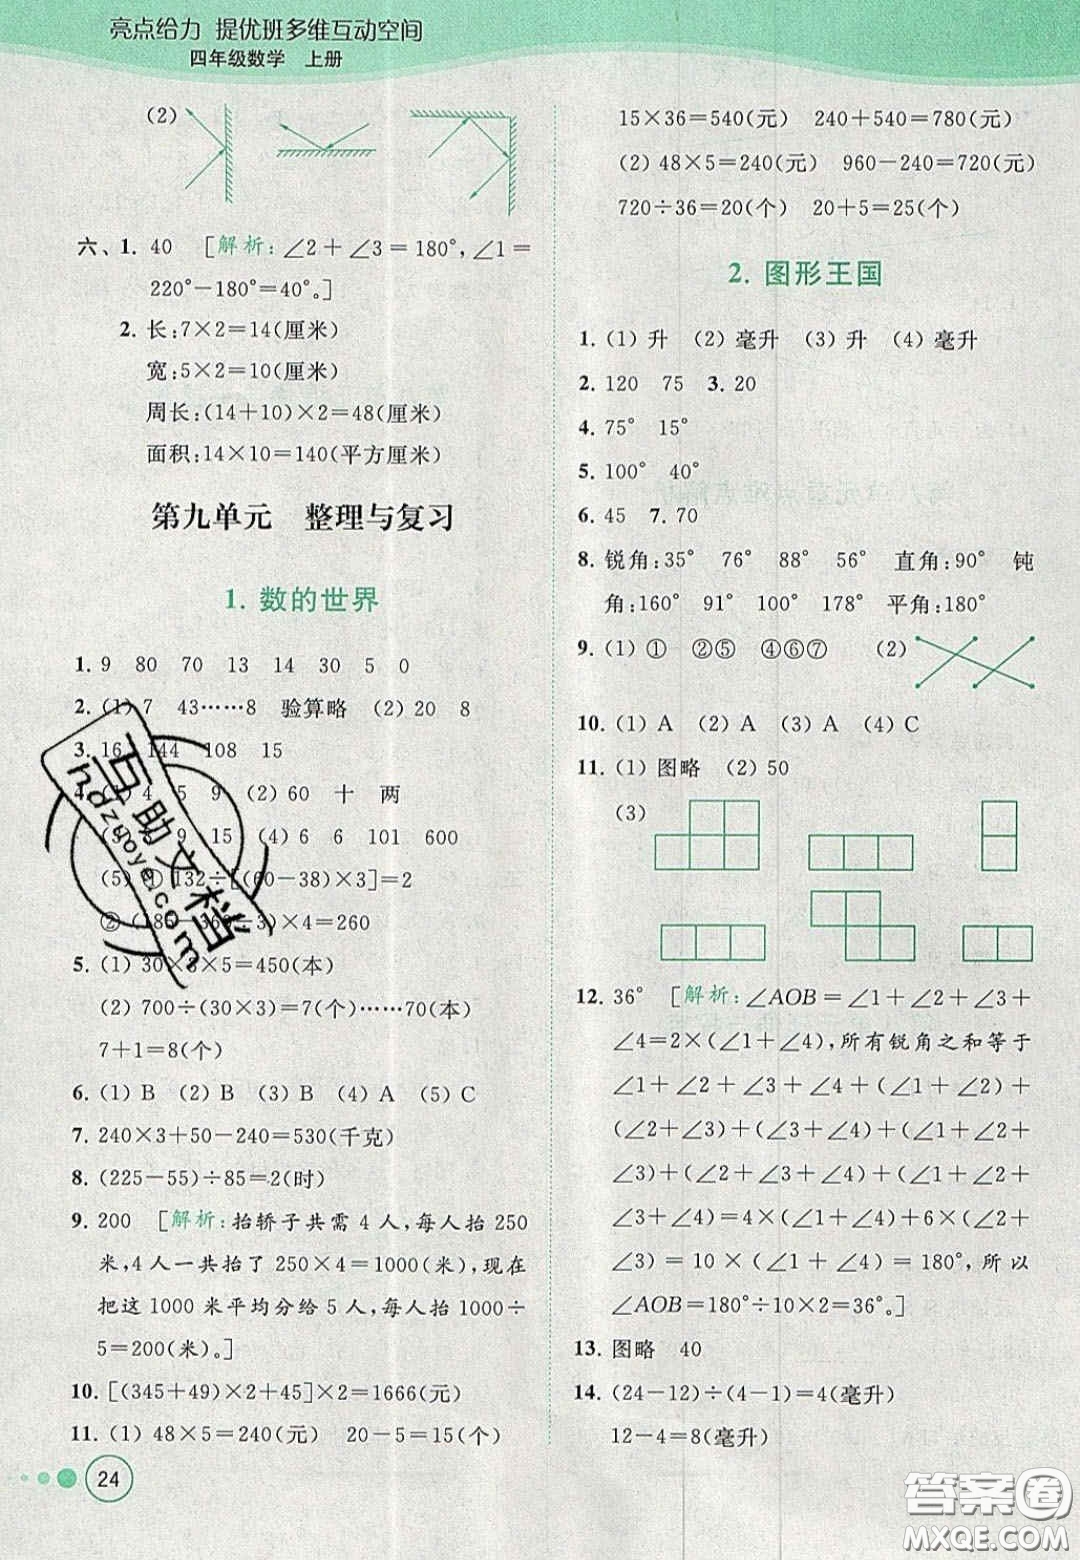 亮点给力 提优班多维互动空间
四年级数学 上册
(2)
六、1. 40 [解析:∠2+∠3=180°,∠1=
220°-180°=40°。]
2. 长:7×2=14(厘米)
宽:5×2=10(厘米)
周长:(14+10)×2=48(厘米)
面积:14×10=140(平方厘米)
第九单元 整理与复习
1. 数的世界
1. 9 80 70 13 14 30 5 0
2. (1) 7 43……8 验算略 (2) 20 8
3. 16 144 108 15
4 5 9 (2) 60 十 两
9 15 (4) 6 6 101 600
(5) ① 132÷[(60-38)×3]=2
② (185-360÷3)×4=260
5. (1) 30×3×5=450(本)
(2) 700÷(30×3)=7(个)……70(本)
7+1=8(个)
6. (1) B (2) B (3) B (4) A (5) C
7. 240×3+50-240=530(千克)
8. (225-55)÷85=2(时)
9. 200 [解析:抬轿子共需 4 人,每人抬 250
米,4 人一共抬了 250×4=1000(米),现在
把这 1000 米平均分给 5 人,每人抬 1000÷
5=200(米)。]
10. [(345+49)×2+45]×2=1666(元)
11. (1) 48×5=240(元) 20-5=15(个)
24
15×36=540(元) 240+540=780(元)
(2) 48×5=240(元) 960-240=720(元)
720÷36=20(个) 20+5=25(个)
2. 图形王国
1. (1) 升 (2) 毫升 (3) 升 (4) 毫升
2. 120 75 3. 20
4. 75° 15°
5. 100° 40°
6. 45 7. 70
8. 锐角:35° 76° 88° 56° 直角:90° 钝
角:160° 91° 100° 178° 平角:180°
9. (1) ① ②⑤ ④⑥⑦ (2)
10. (1) A (2) A (3) A (4) C
11. (1) 图略 (2) 50
(3)
12. 36° [解析:∠AOB=∠1+∠2+∠3+
∠4=2×(∠1+∠4),所有锐角之和等于
∠1+∠2+∠3+∠4+(∠1+∠2)+
(∠2+∠3)+(∠3+∠4)+(∠1+∠2+
∠3)+(∠2+∠3+∠4)+(∠1+∠2+
∠3+∠4)=4×(∠1+∠4)+6×(∠2+
∠3)=10×(∠1+∠4)=180°,所以
∠AOB=180°÷10×2=36°。]
13. 图略 40
14. (24-12)÷(4-1)=4(毫升)
12-4=8(毫升)
互助文档
hdzuoye.com
答案圈
MXQE.COM